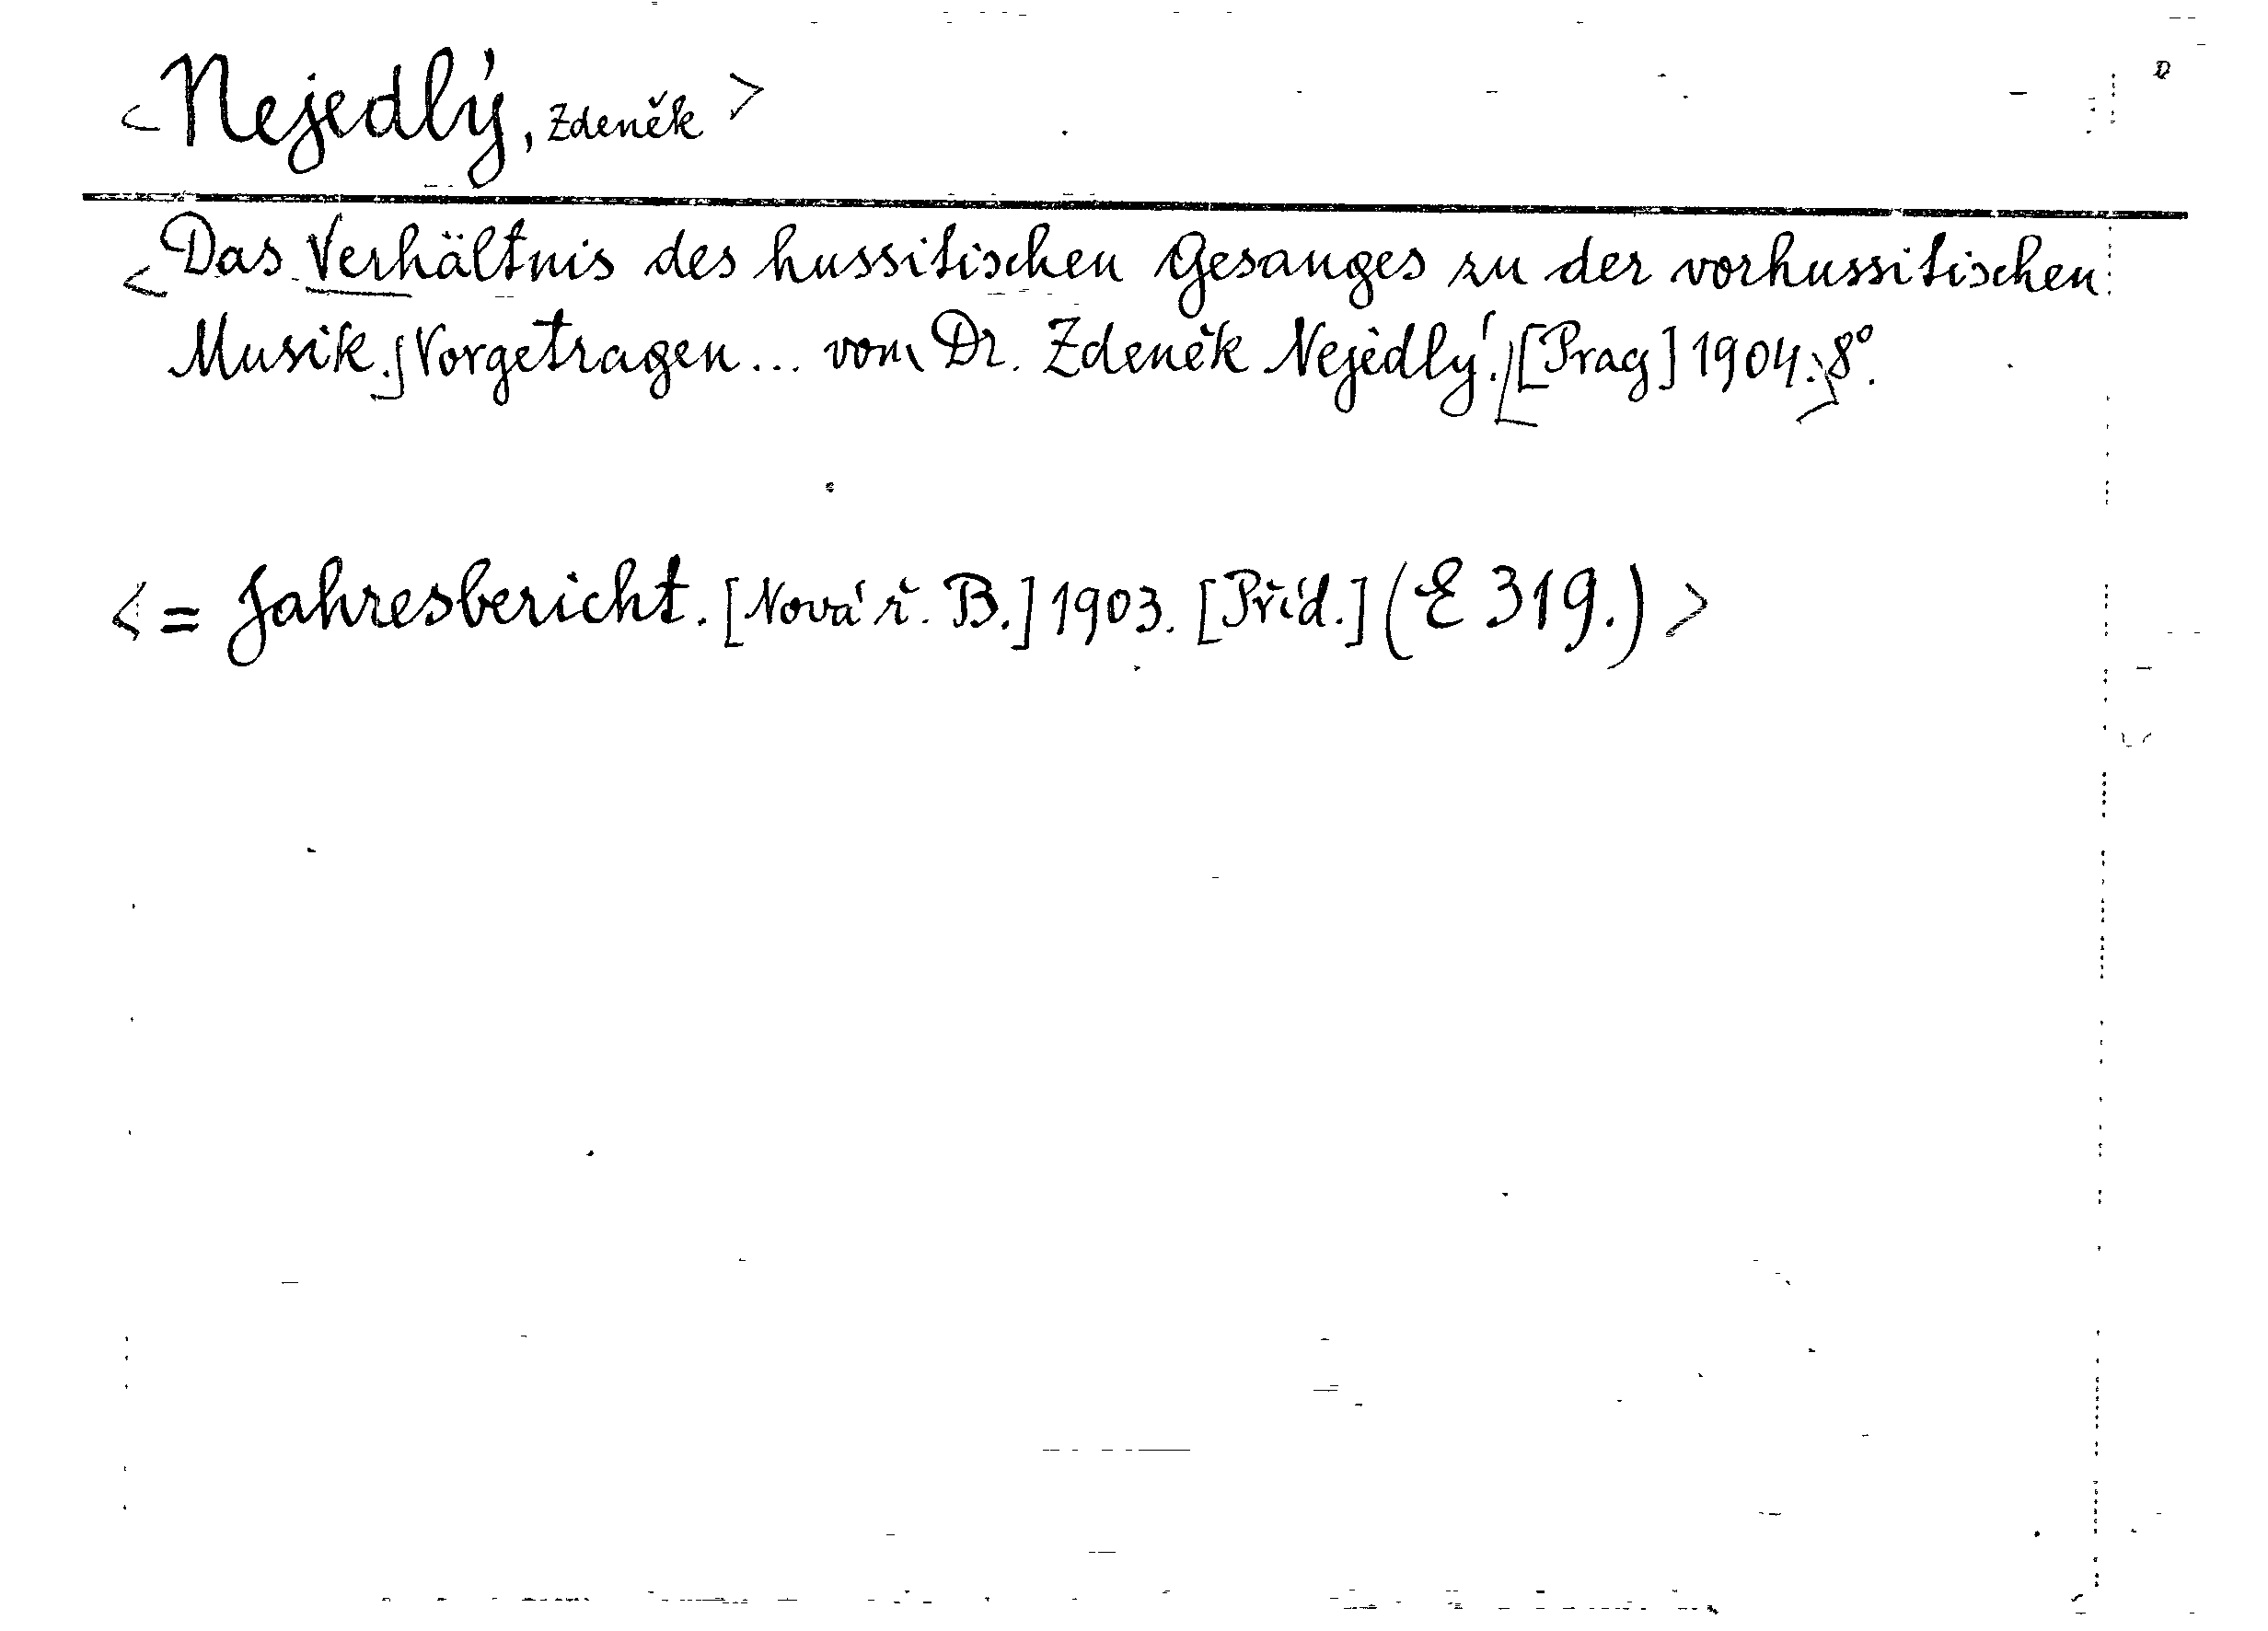 <Nejedlý, Zdeněk>
<Das Verhältnis des hussitischen Gesanges zu der vorhussitischen
Musik.⌋Vorgetragen... vom Dr. Zdeněk Nejedlý.⌊[Prag] 1904.> 8°.
<= Jahresbericht. [Nová ř. B.] 1903. [Příd.] (E 319.)>